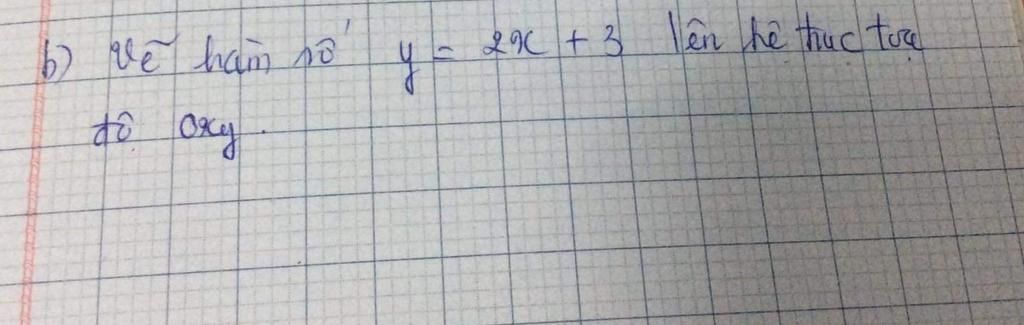 b) Vẽ hàm số y = 2x + 3 lên hệ trục toạ
độ oxy.